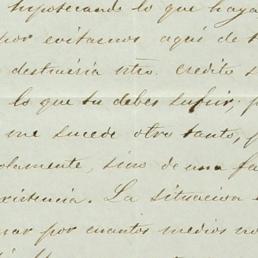 hipotecando lo que haya
por evitarnos aquí de t
destruiria ntro. credito s
lo que tu debes sufrir, p
me sucede otro tanto, p
lamente, sino de una fa
xistencia. La situacion
nar por cuantos medios no